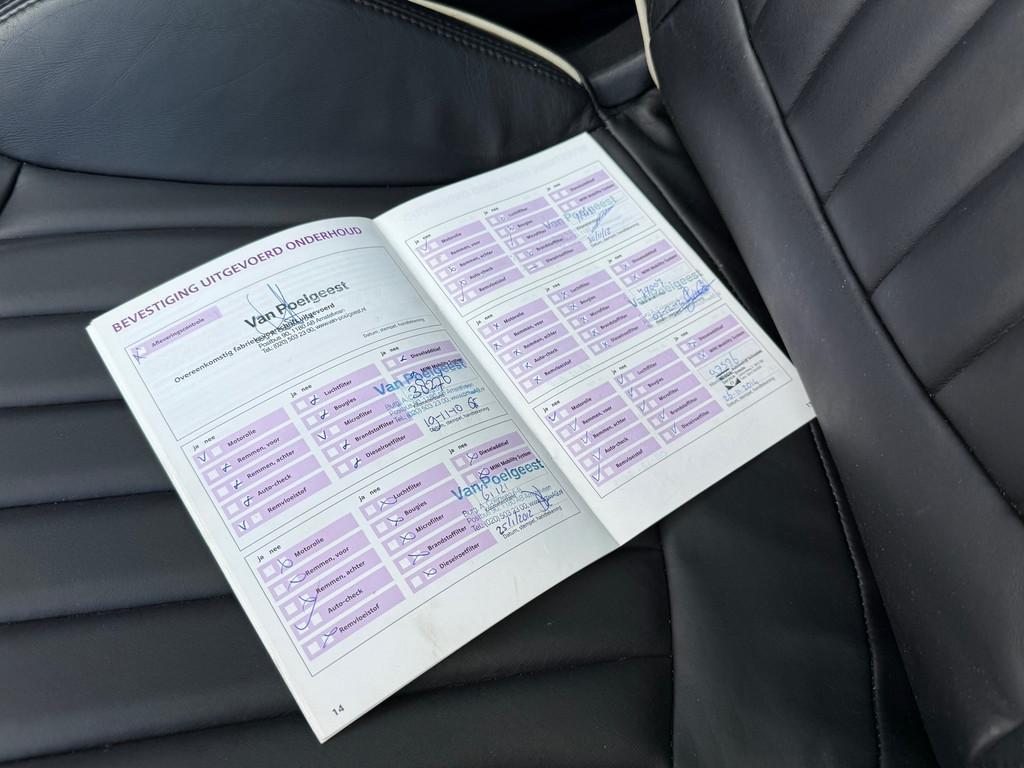 BEVESTIGING UITGEVOERD ONDERHOUD
Afleveringscontrole
Van Poelgeest
Overeenkomstig fabrieksvoorschrift uitgevoerd
Postbus 90, 1180 AB Amstelveen
Tel. (020) 503 23 00, www.van-poelgeest.nl
Datum, stempel, handtekening
ja nee
Motorolie
Remmen, voor
Remmen, achter
Auto-check
Remvloeistof
ja nee
Luchtfilter
Bougies
Microfilter
Brandstoffilter
Dieselroetfilter
ja nee
Dieseladditief
MINI Mobility System
Van Poelgeest
38276
19-11-10
Datum, stempel, handtekening
ja nee
Motorolie
Remmen, voor
Remmen, achter
Auto-check
Remvloeistof
ja nee
Luchtfilter
Bougies
Microfilter
Brandstoffilter
Dieselroetfilter
ja nee
Dieseladditief
MINI Mobility System
Van Poelgeest
Tel. (020) 503 23 00, www.van-poelgeest.nl
25/1/2012
Datum, stempel, handtekening
14
ja nee
Motorolie
Remmen, voor
Remmen, achter
Auto-check
Remvloeistof
ja nee
Luchtfilter
Bougies
Microfilter
Brandstoffilter
Dieselroetfilter
ja nee
Dieseladditief
MINI Mobility System
Van Poelgeest
Datum, stempel, handtekening
ja nee
Motorolie
Remmen, voor
Remmen, achter
Auto-check
Remvloeistof
ja nee
Luchtfilter
Bougies
Microfilter
Brandstoffilter
Dieselroetfilter
ja nee
Dieseladditief
MINI Mobility System
Van Poelgeest
Datum, stempel, handtekening
ja nee
Motorolie
Remmen, voor
Remmen, achter
Auto-check
Remvloeistof
ja nee
Luchtfilter
Bougies
Microfilter
Brandstoffilter
Dieselroetfilter
ja nee
Dieseladditief
MINI Mobility System
Datum, stempel, handtekening